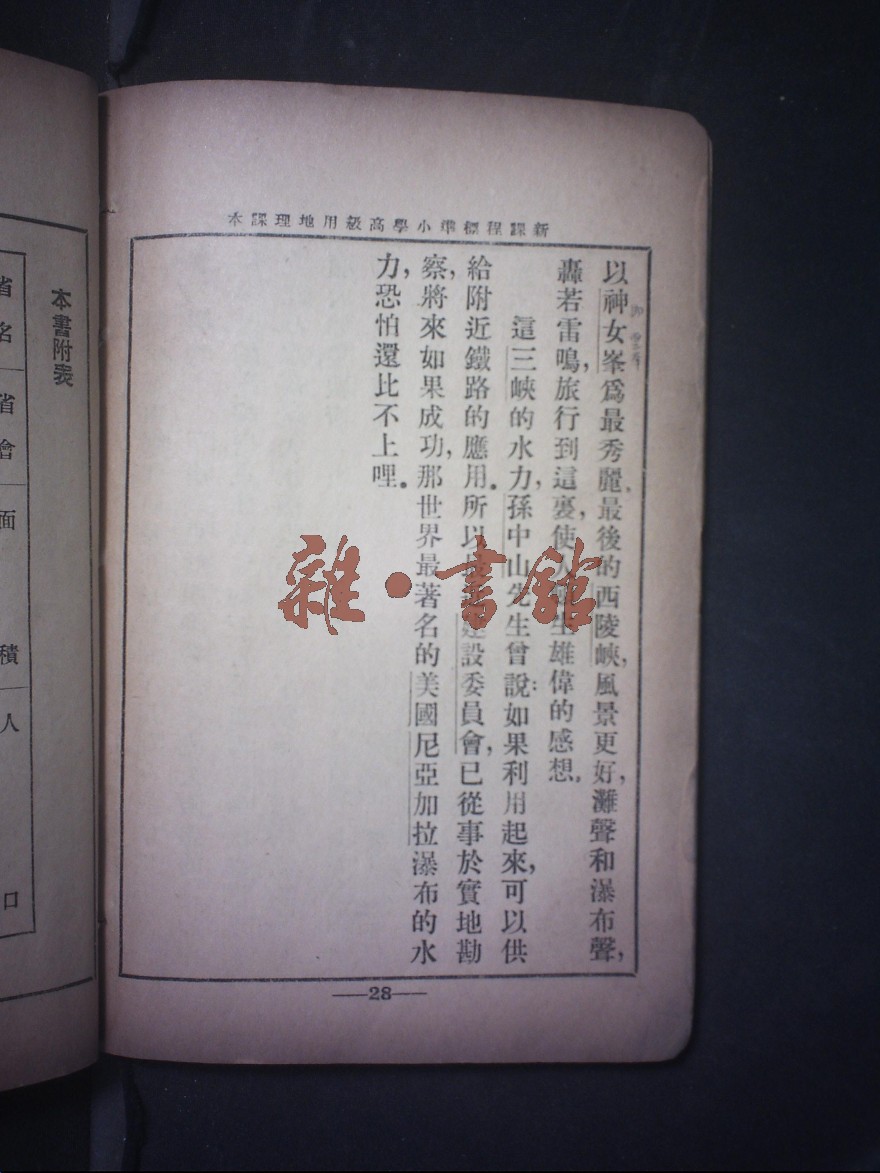 新課程標準小學高級用地理課本
以神女峯爲最秀麗,最後的西陵峽,風景更好,灘聲和瀑布聲,
轟若雷鳴,旅行到這裏,使人生雄偉的感想。
這三峽的水力,孫中山先生曾說:如果利用起來,可以供
給附近鐵路的應用。所以建設委員會,已從事於實地勘
察,將來如果成功,那世界最著名的美國尼亞加拉瀑布的水
力,恐怕還比不上哩。
—28—
雜·書館
本書附表
省名
省會
面積
人口